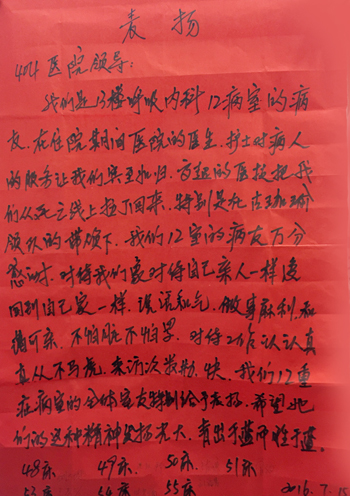 表扬
404医院领导:
我们是13楼呼吸内科12病室的病
友.在住院期间医院的医生.护士对病人
的服务让我们宾至如归.高超的医技把我
们从死亡线上拉了回来.特别是在
领队的带领下.我们12室的病友万分
感谢.对待我们像对待自己亲人一样
回到自己家一样.说话和气.做事麻利.和
蔼可亲.不怕脏不怕累.对待工作认认真
真从不马虎.来访次数勤.快.我们12重
症病室的全体室友特别给予表扬.希望她
们的这种精神发扬光大.青出于蓝而胜于蓝.
48床 49床 50床 51床
53床 54床 55床
2016.7.15